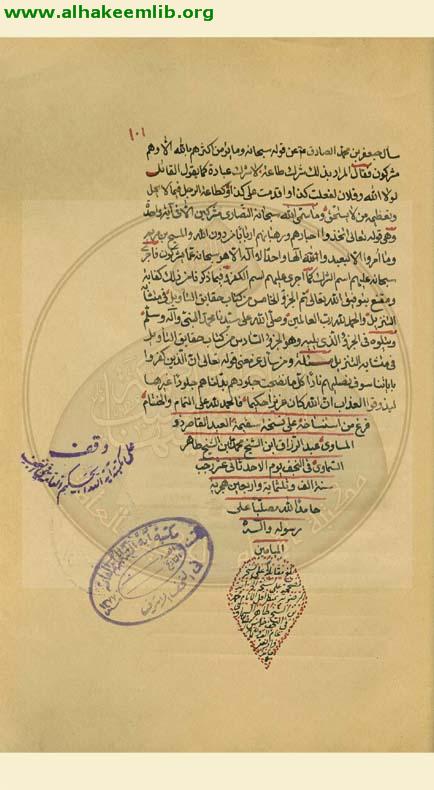 www.alhakeemlib.org
١٠١
سأل جعفر بن محمد الصادق ع عن قوله سبحانه وما يؤمن اكثرهم بالله الا وهم
مشركون فقال المراد بذلك شرك طاعة لا شرك عبادة كما يقول القائل
لولا الله وفلان لفعلت كذا او اقدمت على كذا وكطاعة الرجل فيما لا يحل
وتعظيم من لا يستحق وما سمى الله سبحانه النصارى مشركين الا في آية واحدة
وهي قوله تعالى اتخذوا احبارهم ورهبانهم اربابا من دون الله والمسيح بن مريم
وما امروا الا ليعبدوا الها واحدا لا اله الا هو سبحانه عما يشركون فاجرى
سبحانه عليهم اسم الشرك كما اجرى عليهم اسم الكفر وفيما ذكرنا من ذلك كفاية
ومقنع بتوفيق الله تعالى تم الجزء الخامس من كتاب حقايق التأويل في متشابه
التنزيل والحمد لله رب العالمين وصلى الله على سيدنا محمد النبي وآله وسلم
ويتلوه في الجزء الذي يليه وهو الجزء السادس من كتاب حقايق التأويل
في متشابه التنزيل مسئلة ومن سأل عن معنى قوله تعالى ان الذين كفروا
باياتنا سوف نصليهم نارا كلما نضجت جلودهم بدلناهم جلودا غيرها
ليذوقوا العذاب ان الله كان عزيزا حكيما فالحمد لله على التمام والختام
فرغ من استنساخه على نسخة سقيمة العبد القاصر ذو
المساوي عبد الرزاق ابن الشيخ محمد ابن الشيخ طاهر
السماوي في النجف يوم الاحد ثاني عشر رجب
سنة الف وثلثماية واربعين هجرية
حامدا لله مصليا على
رسوله وآله
الميامين
وقف
على مكتبة آية الله الحكيم العامة
مكتبة آية الله الحكيم العامة
في النجف الاشرف